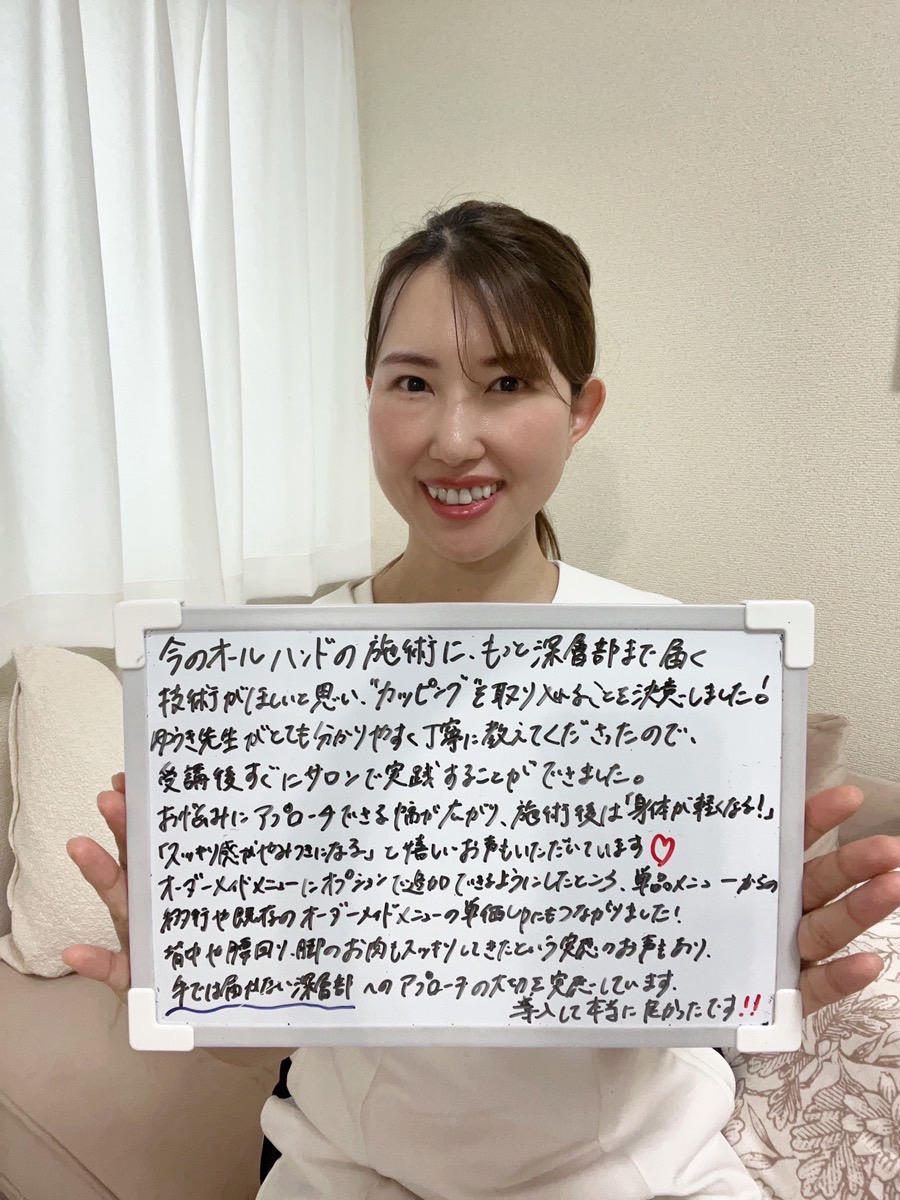 今のオールハンドの施術に、もっと深層部まで届く
技術がほしいと思い、"カッピング"を取り入れることを決意しました!
ゆうき先生がとても分かりやすく丁寧に教えてくださったので、
受講後すぐにサロンで実践することができました。
お悩みにアプローチできる幅が広がり、施術後は「身体が軽くなる!」
「スッキリ感がやみつきになる」と嬉しいお声もいただいています♡
オーダーメイドメニューにオプションで追加できるようにしたところ、単品メニューからの
移行や既存のオーダーメイドメニューの単価UPにもつながりました!
背中や腰回り、脚のお肉もスッキリしてきたという実感のお声もあり、
手では届かない深層部へのアプローチの大切を実感しています。
導入して本当に良かったです!!